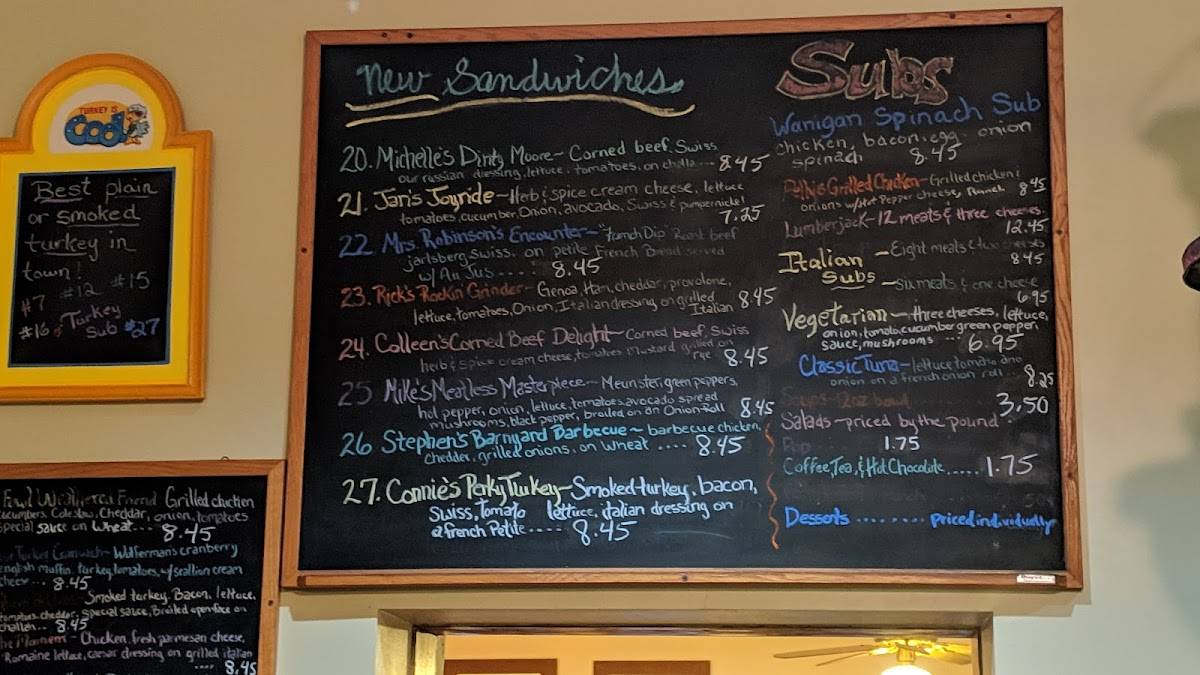 TURKEY IS
Cool
Best plain
or smoked
turkey in
town!
#7 #12 #15
#16 & Turkey
Sub #27
New Sandwiches
20. Michelle's Dinty Moore - Corned beef, Swiss
our russian dressing, lettuce, tomatoes, on challa --- 8.45
21. Jan's Joyride - Herb & spice cream cheese, lettuce
tomatoes, cucumber, Onion, avocado, Swiss & pumpernickel
7.25
22 Mrs. Robinson's Encounter - French Dip Roast beef
jarlsberg Swiss, on petite French Bread served
w/ Au Jus ---- 8.45
23. Rick's Rockin Grinder - Genoa, Ham, cheddar, provolone,
lettuce, tomatoes, Onion, Italian dressing on grilled
Italian 8.45
24. Colleen's Corned Beef Delight - Corned beef, Swiss
herb & spice cream cheese, tomatoes mustard grilled on
rye 8.45
25 Mike's Meatless Masterpiece - Meunster, green peppers,
hot pepper, onion, lettuce, tomatoes avocado spread
mushrooms, black pepper, broiled on an Onion Roll 8.45
26 Stephen's Barnyard Barbecue ~ barbecue chicken,
chedder, grilled onions, on wheat .... 8.45
27. Connie's Perky Turkey - Smoked turkey, bacon,
Swiss, Tomato lettuce, italian dressing on
a french Petite ----- 8.45
Subs
Wanigan Spinach Sub
chicken, bacon, egg onion
spinach 8.45
Grilled Chicken - Grilled chicken &
onions w/ Hot Pepper cheese, Ranch 8.45
Lumberjack - 12 meats & three cheeses
12.45
Italian - Eight meats & two cheeses
8.45
Subs - Six meats & one cheese
6.95
Vegetarian - three cheeses, lettuce,
onion, tomato, cucumber green pepper,
sauce, mushrooms --- 6.95
Classic Tuna - lettuce tomato and
onion on a french onion roll -- 8.25
Soups - 12oz bowl 3.50
Salads - priced by the pound
Pop 1.75
Coffee, Tea, & Hot Chocolate ..... 1.75
Desserts ........ Priced individually
Fowl Weathered Friend Grilled chicken
cucumbers, Coleslaw, Cheddar, onion, tomatoes
special sauce on wheat... 8.45
Wolferman's cranberry
english muffin, turkey, tomatoes, w/ scallion cream
cheese ... 8.45
Smoked turkey, Bacon, lettuce,
tomatoes, cheddar, special sauce, Broiled openface on
challah .. 8.45
Chicken, fresh parmesan cheese,
Romaine lettuce, caesar dressing on grilled italian
.... 8.45